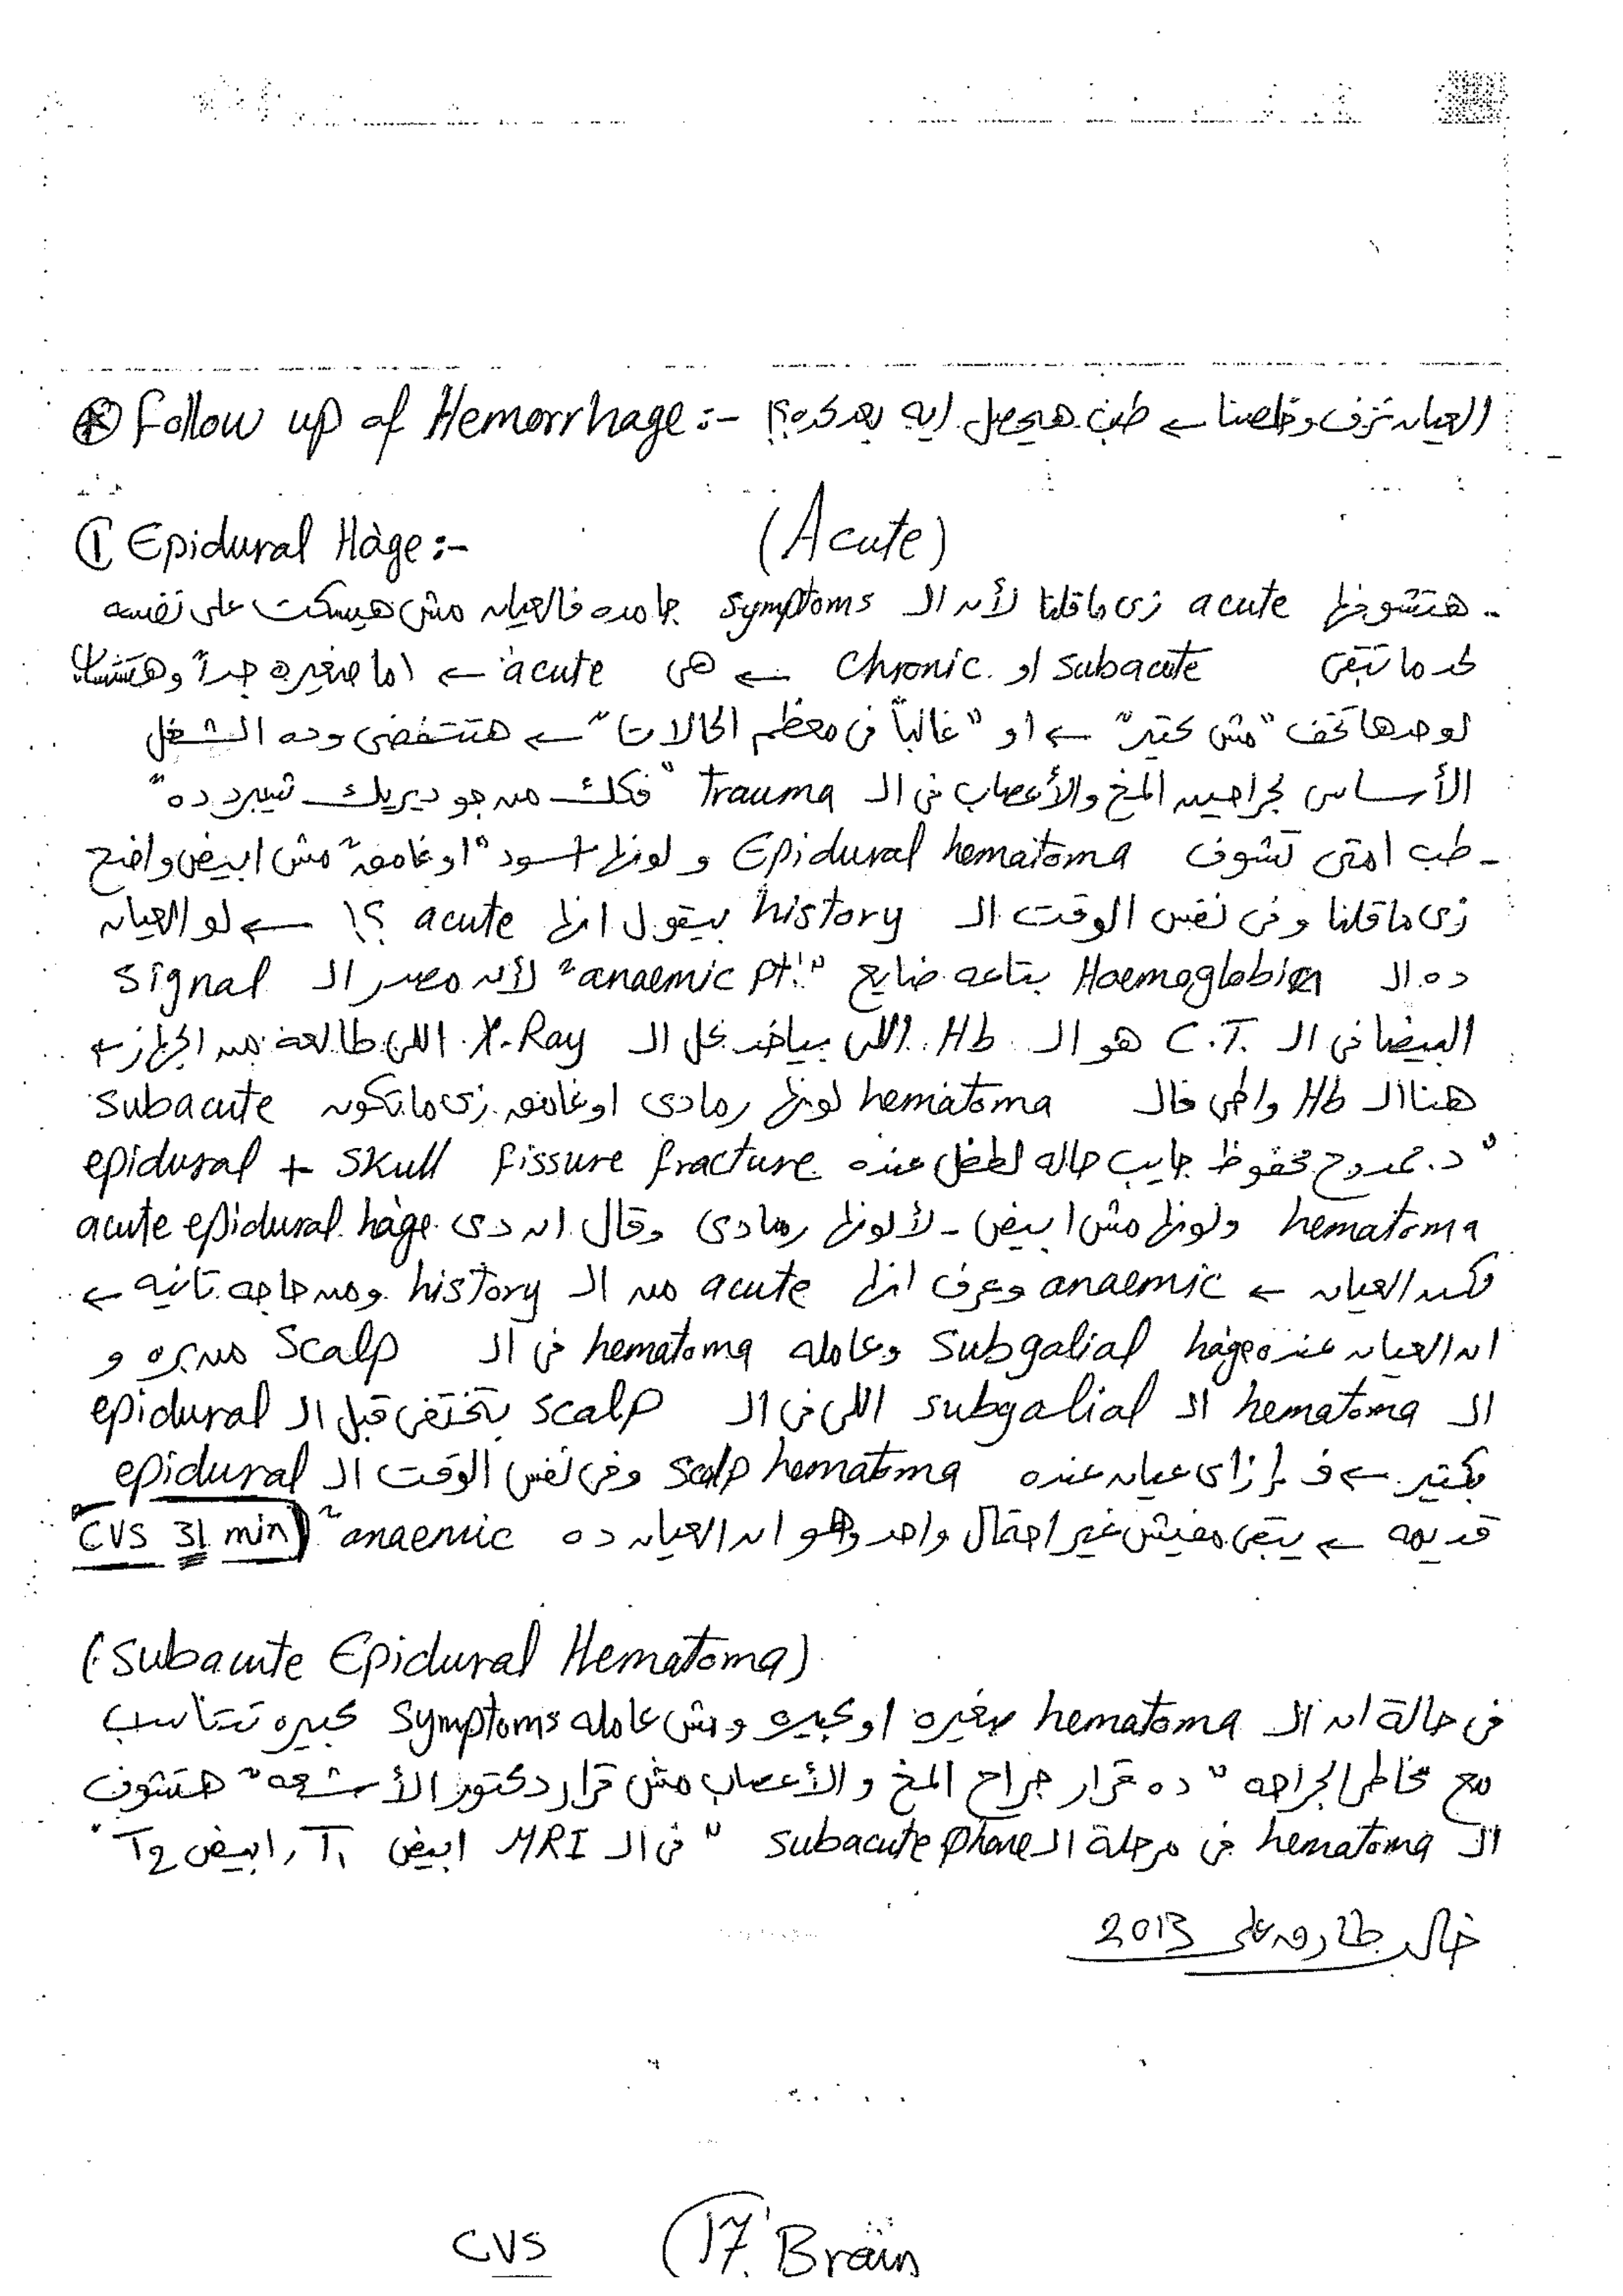 ⊛ Follow up of Hemorrhage :- العيان نزف وخلصنا ← طب هيحصل ايه بعد كده؟!
① Epidural Hage :- (Acute)
- هتشوفها acute زى ما قلنا لأن الـ symptoms جامده فالعيان مش هيسكت على نفسه
لحد ما تبقى subacute او chronic ← هى acute ← اما صغيره جداً وهتتساب
لوحدها تخف "مش كتير" ← او "غالباً فى معظم الحالات" ← هتتفضى وده الشغل
الأساسى لجراحين المخ والأعصاب فى الـ trauma "فكك من جو ديريك شيبرد ده"
- طب امتى تشوف Epidural hematoma و لونها اسود "او غامق" مش ابيض واضح
زى ما قلنا وفى نفس الوقت الـ history بيقول انها acute ؟! ← لو العيان
ده الـ Haemoglobin بتاعه ضايع "anaemic pt." لأن مصدر الـ signal
البيضا فى الـ C.T. هو الـ Hb اللى بياخد كل الـ X-Ray اللى طالعه من الجهاز ←
هنا الـ Hb واطى فالـ hematoma لونها رمادى او غامق زى ما تكون subacute
"د. ممدوح محفوظ جايب حاله لطفل عنده epidural + skull fissure fracture
hematoma ولونها مش ابيض - لأ لونها رمادى وقال ان دى acute epidural hage
لكن العيان ← anaemic وعرف انها acute من الـ history ومن حاجه تانيه ←
ان العيان عنده subgalial hage وعامله hematoma فى الـ scalp من بره و
الـ hematoma الـ subgalial اللى فى الـ scalp بتختفى قبل الـ epidural
بكتير ← ف إزاى عيان عنده scalp hematoma وفى نفس الوقت الـ epidural
قديمه ← يبقى مفيش غير احتمال واحد وهو ان العيان ده anaemic" (CVS 31 min)
(Subacute Epidural Hematoma)
فى حالة ان الـ hematoma صغيره او كبيره ومش عامله symptoms كبيره تتناسب
مع مخاطر الجراحه "ده قرار جراح المخ و الأعصاب مش قرار دكتور الأشعه" هتشوف
الـ hematoma فى مرحلة الـ subacute phase "فى الـ MRI ابيض T1, ابيض T2"
خالد طارق على 2013
CVS 17 Brain